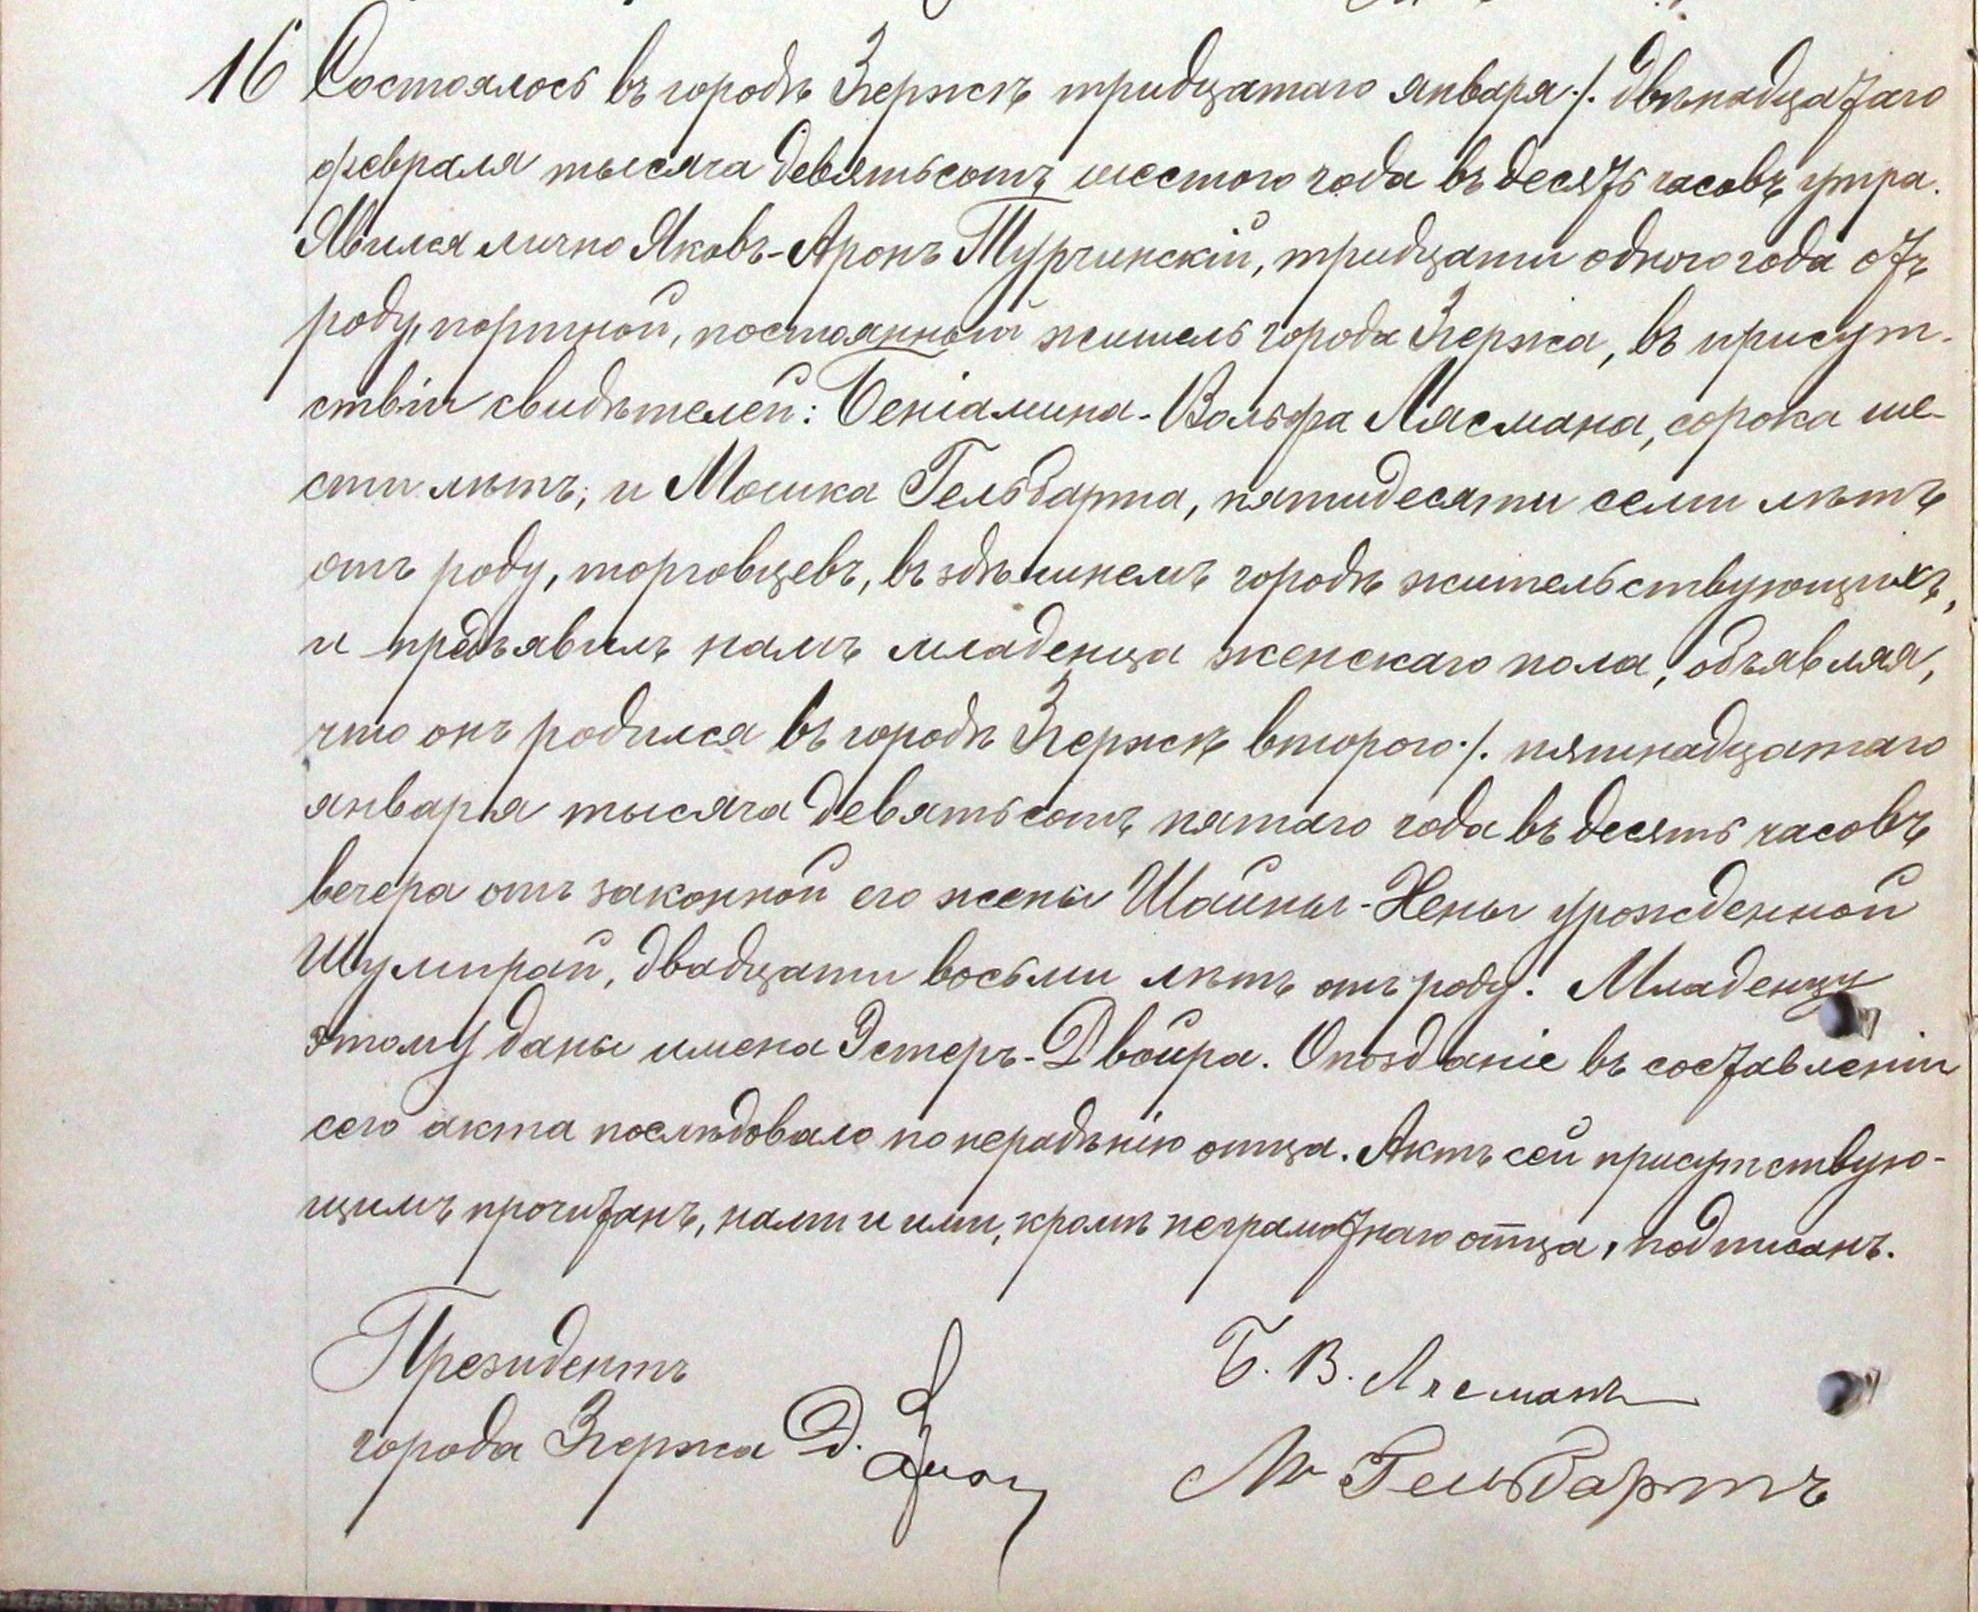 16 Состоялось въ городѣ Згержѣ тридцатаго января ·/. двѣнадцатаго
февраля тысяча девятьсотъ шестого года въ десять часовъ утра.
Явился лично Яковъ-Аронъ Турчинскій, тридцати одного года отъ
роду, портной, постоянный житель города Згержа, въ присут-
ствіи свидѣтелей: Беніамина-Вольфа Лясмана, сорока ше-
сти лѣтъ; и Мошка Гельбарта, пятидесяти семи лѣтъ
отъ роду, торговцевъ, въ здѣшнемъ городѣ жительствующихъ,
и предъявилъ намъ младенца женскаго пола, объявляя,
что онъ родился въ городѣ Згержѣ второго ·/. пятнадцатаго
января тысяча девятьсотъ пятаго года въ десять часовъ
вечера отъ законной его жены Шайны-Хены урожденной
Шумирай, двадцати восьми лѣтъ отъ роду. Младенцу
этому даны имена Эстеръ-Двойра. Опозданіе въ составленіи
сего акта послѣдовало по нерадѣнію отца. Актъ сей присутствую-
щимъ прочитанъ, нами и ими, кромѣ неграмотнаго отца, подписанъ.
Президентъ
города Згержа
Б. В. Лясманъ
М Гельбартъ